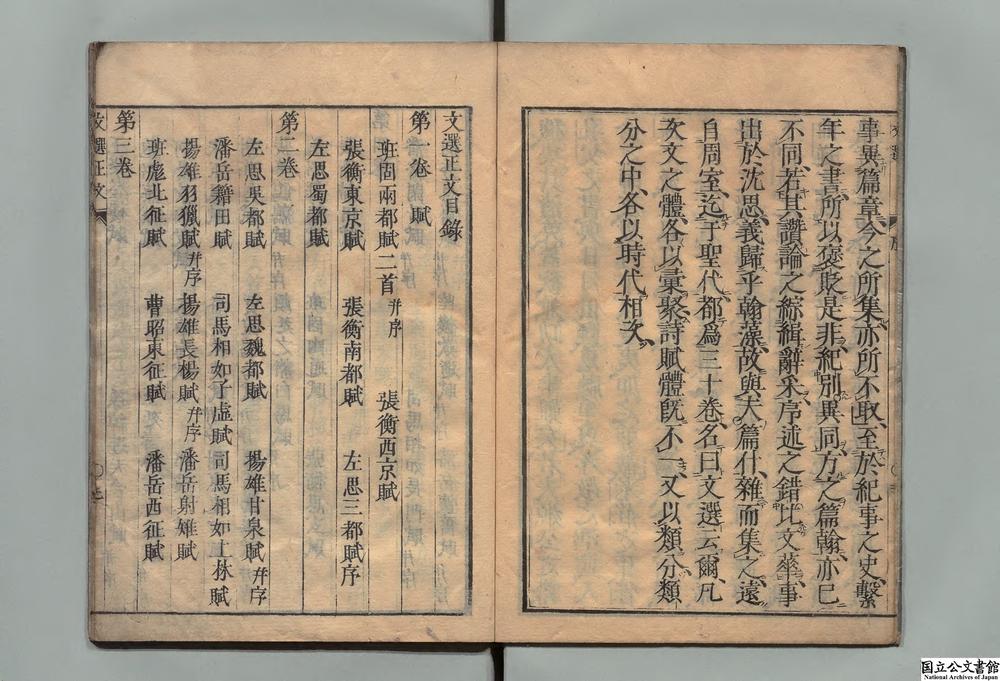 事異篇章今之所集亦所不取至於紀事之史繫
年之書所以褒貶是非紀別異同方之篇翰亦已
不同若其讚論之綜緝辭采序述之錯比文華事
出於沈思義歸乎翰藻故與夫篇什雜而集之遠
自周室迄于聖代都爲三十卷名曰文選云爾凡
次文之體各以彙聚詩賦體旣不一又以類分類
分之中各以時代相次
文選正文目錄
第一卷 賦
班固兩都賦二首 幷序 張衡西京賦
張衡東京賦 張衡南都賦 左思三都賦序
左思蜀都賦
第二卷
左思吳都賦 左思魏都賦 揚雄甘泉賦 幷序
潘岳籍田賦 司馬相如子虛賦 司馬相如上林賦
揚雄羽獵賦 幷序 揚雄長楊賦 幷序 潘岳射雉賦
班彪北征賦 曹昭東征賦 潘岳西征賦
第三卷
文選正文
国立公文書館
National Archives of Japan